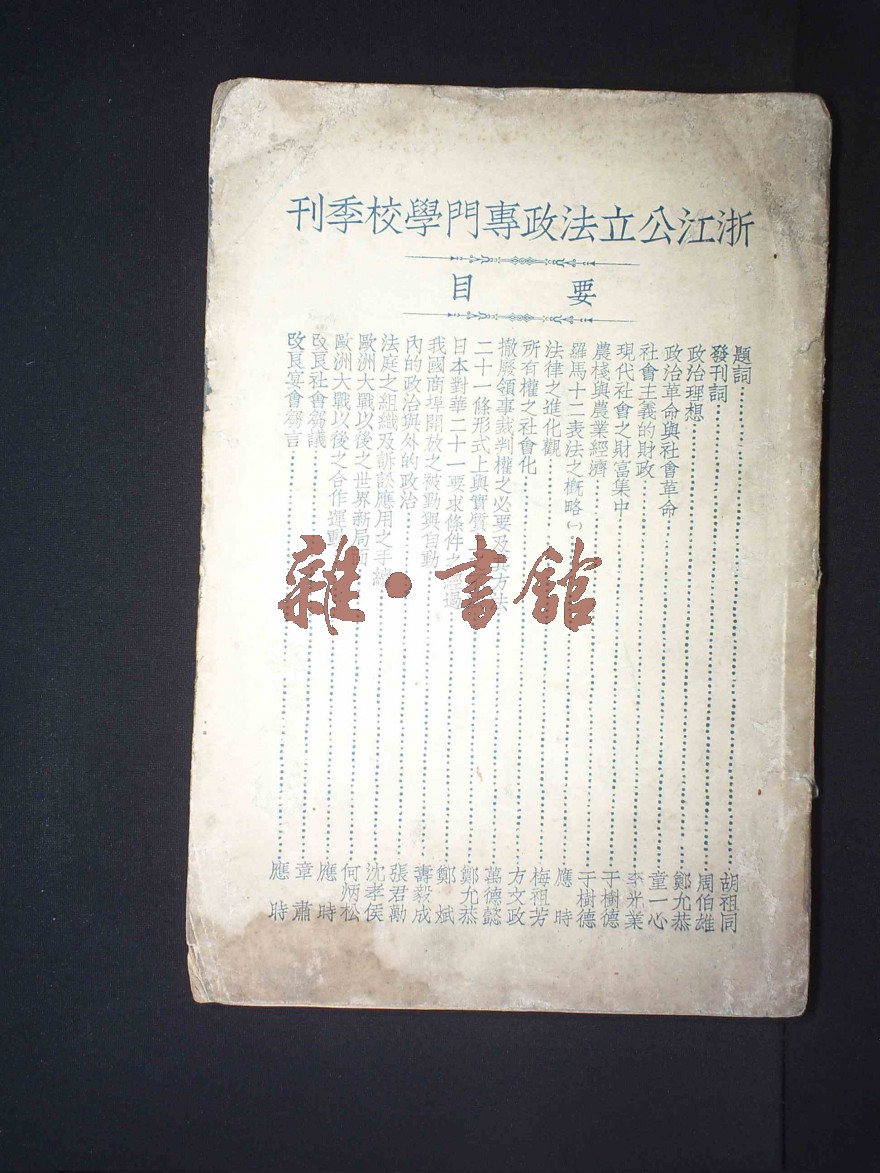 浙江公立法政專門學校季刊
要目
題詞 胡祖同
發刊詞 周伯雄
政治理想 鄭允恭
政治革命與社會革命 童一心
社會主義的財政 李光業
現代社會之財富集中 于樹德
農棧與農業經濟 于樹德
羅馬十二表法之概略(一) 應時
法律之進化觀 梅祖芳
所有權之社會化 方文政
撤廢領事裁判權之必要及 方 萬德懿
二十一條形式上與實質 鄭允恭
日本對華二十一要求條件之 過 鄭斌
我國商埠開放之被動與自動 壽毅成
內的政治與外的政治 張君勱
法庭之組織及訴訟應用之手續 沈孝侯
歐洲大戰以後之世界新局面 何炳松
歐洲大戰以後之合作運動 應時
改良社會芻議 章肅
改良宴會芻言 應時
雜·書館